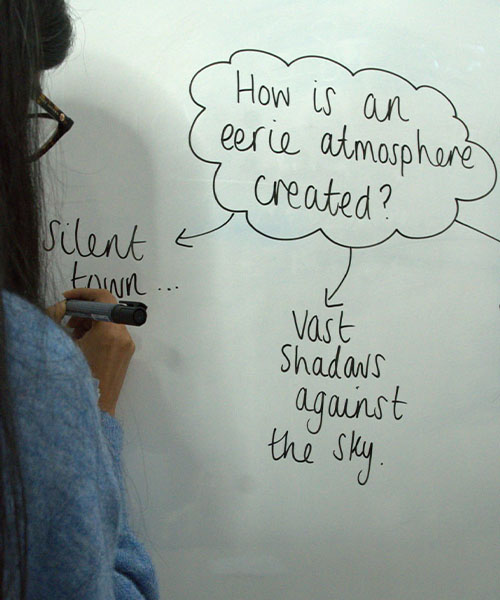 How is an
eerie atmosphere
created?
Silent
town...
Vast
Shadows
against
the sky.